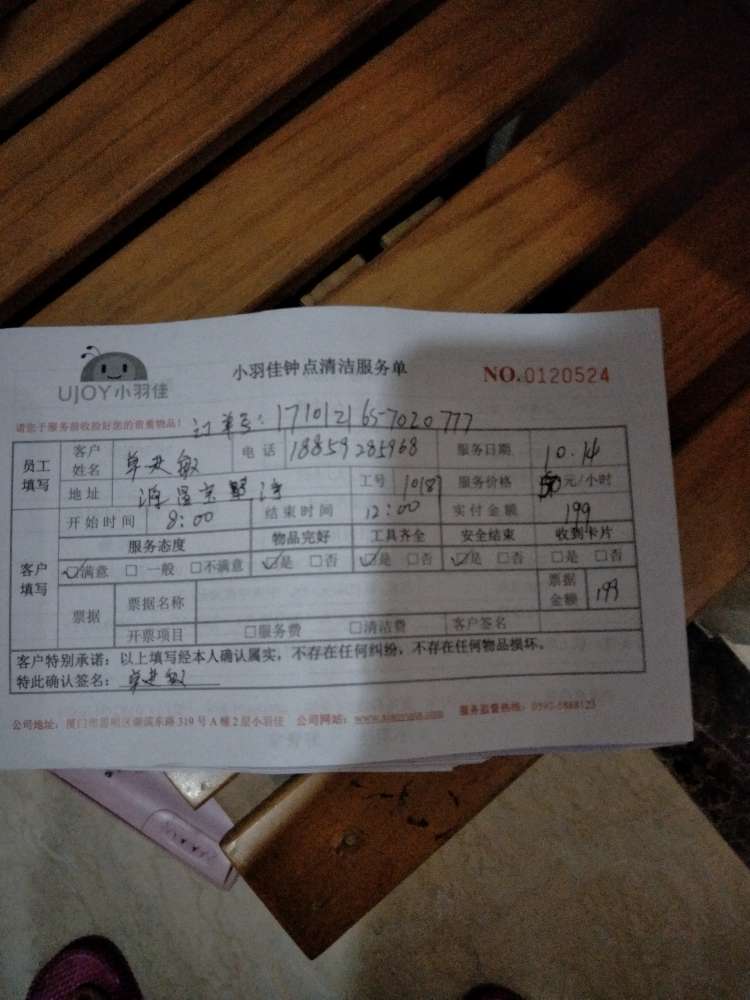 UJOY小羽佳
小羽佳钟点清洁服务单
NO.0120524
请您于服务前收拾好您的贵重物品!
订单号: 171012165-7020777
员工填写 客户姓名 卓进敏 电话 18859285968 服务日期 10.14
地址 工号 10187 服务价格 50元/小时
客户填写 开始时间 8:00 结束时间 12:00 实付金额 199
服务态度 物品完好 工具齐全 安全结束 收到卡片
☑满意 □一般 □不满意 ☑是 □否 ☑是 □否 ☑是 □否 □是 □否
票据 票据名称 票据金额 199
开票项目 □服务费 □清洁费 客户签名
客户特别承诺：以上填写经本人确认属实，不存在任何纠纷，不存在任何物品损坏。
特此确认签名：卓进敏
公司地址：厦门市思明区湖滨东路 319 号 A 幢 2 层小羽佳 公司网站： 服务监督热线：0592-5868123